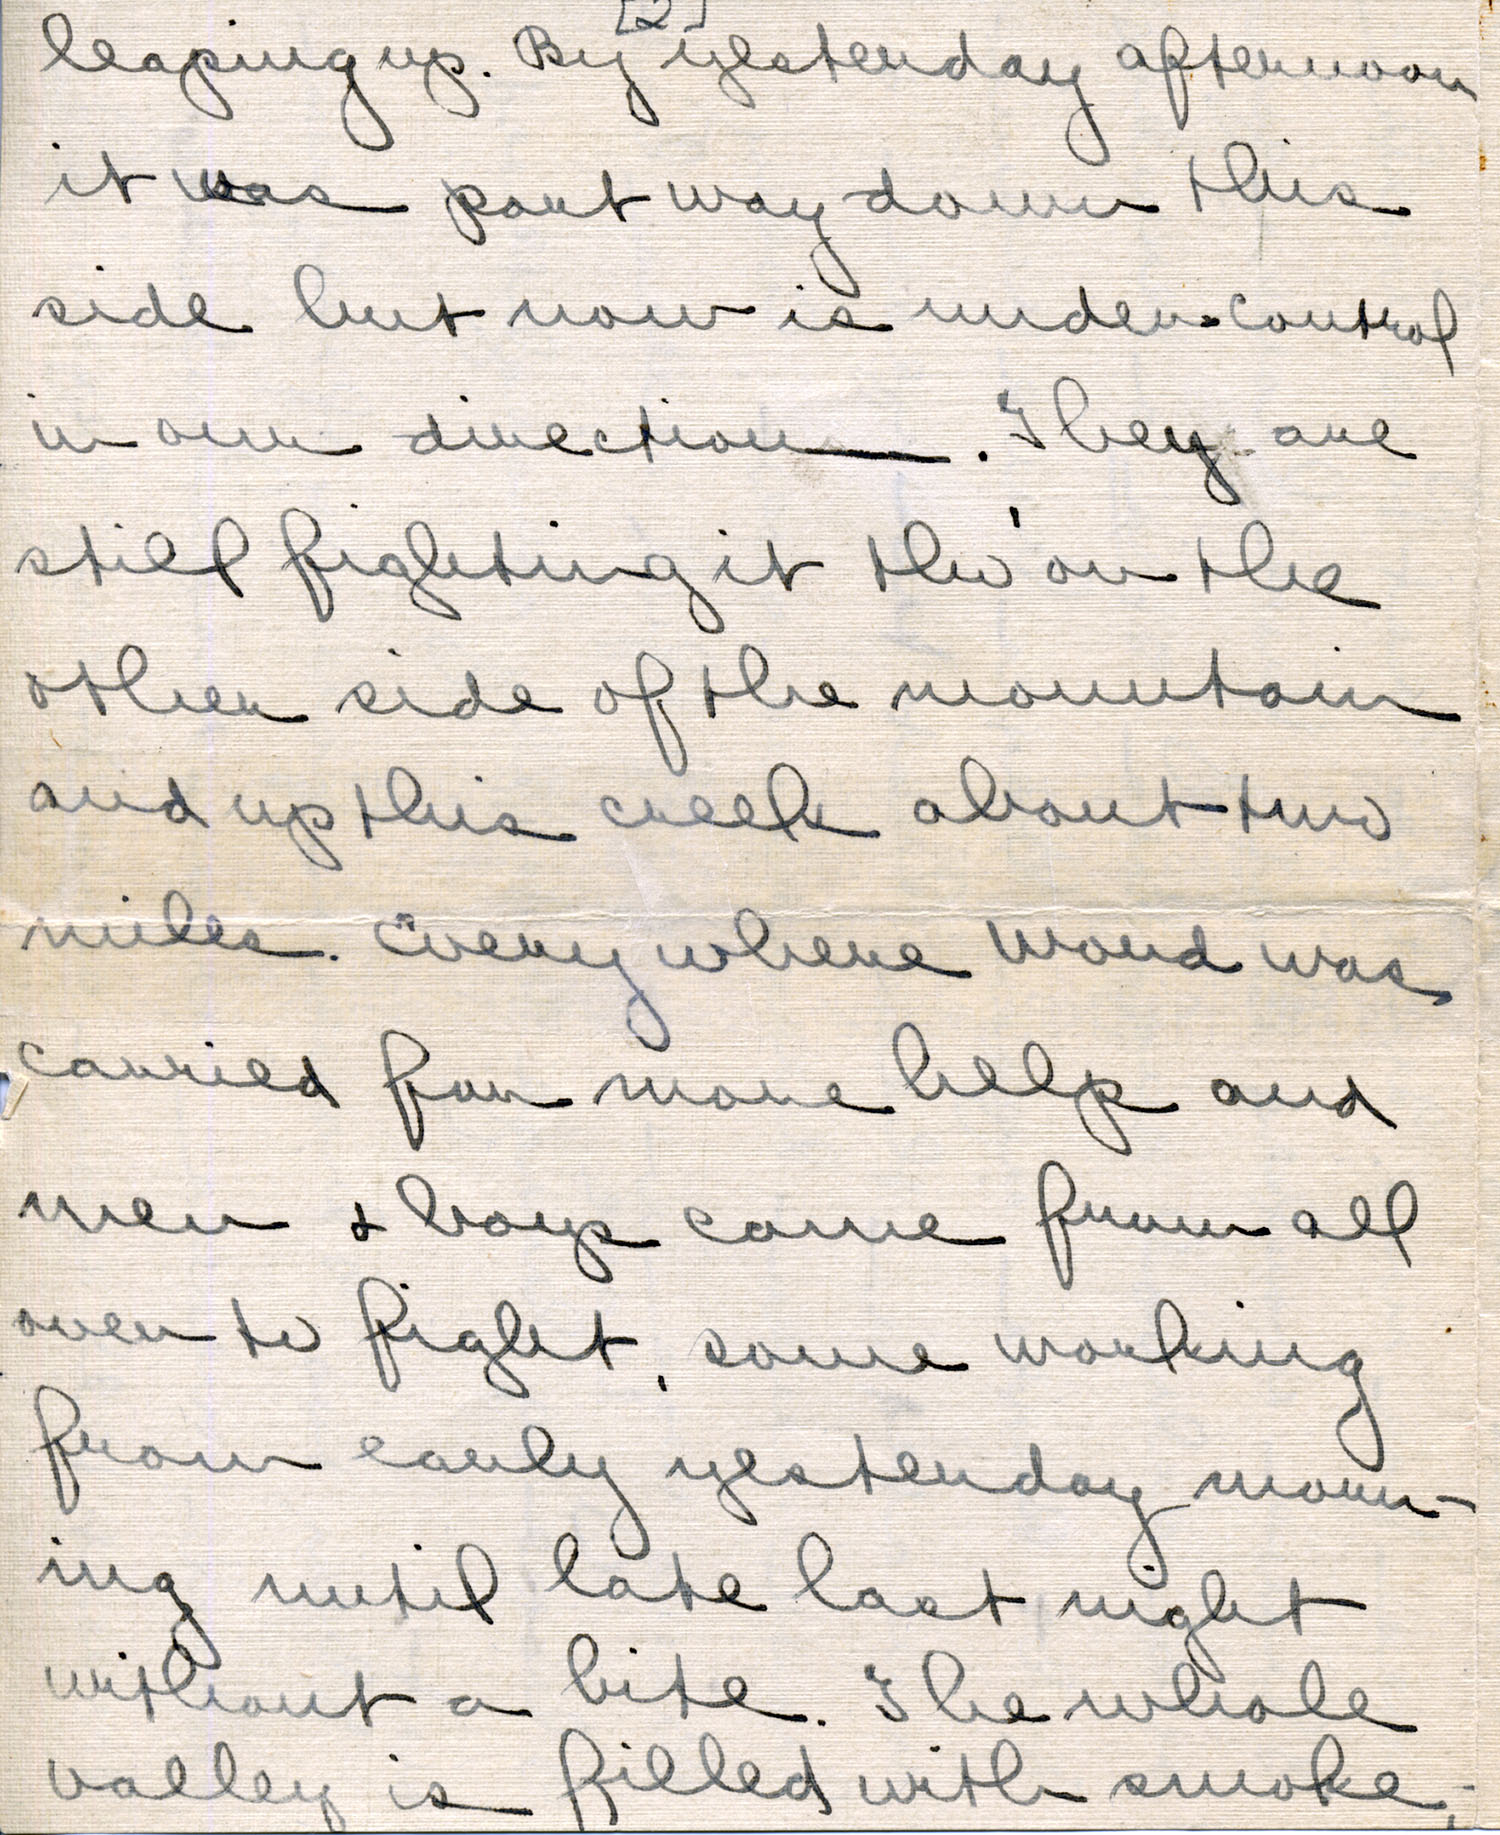 [2]
leaping up. By yesterday afternoon
it was part way down this
side but now is under control
in our direction. They are
still fighting it tho' on the
other side of the mountain
and up this creek about two
miles. Everywhere word was
carried for more help and
men & boys came from all
over to fight, some working
from early yesterday morn-
ing until late last night
without a bite. The whole
valley is filled with smoke,